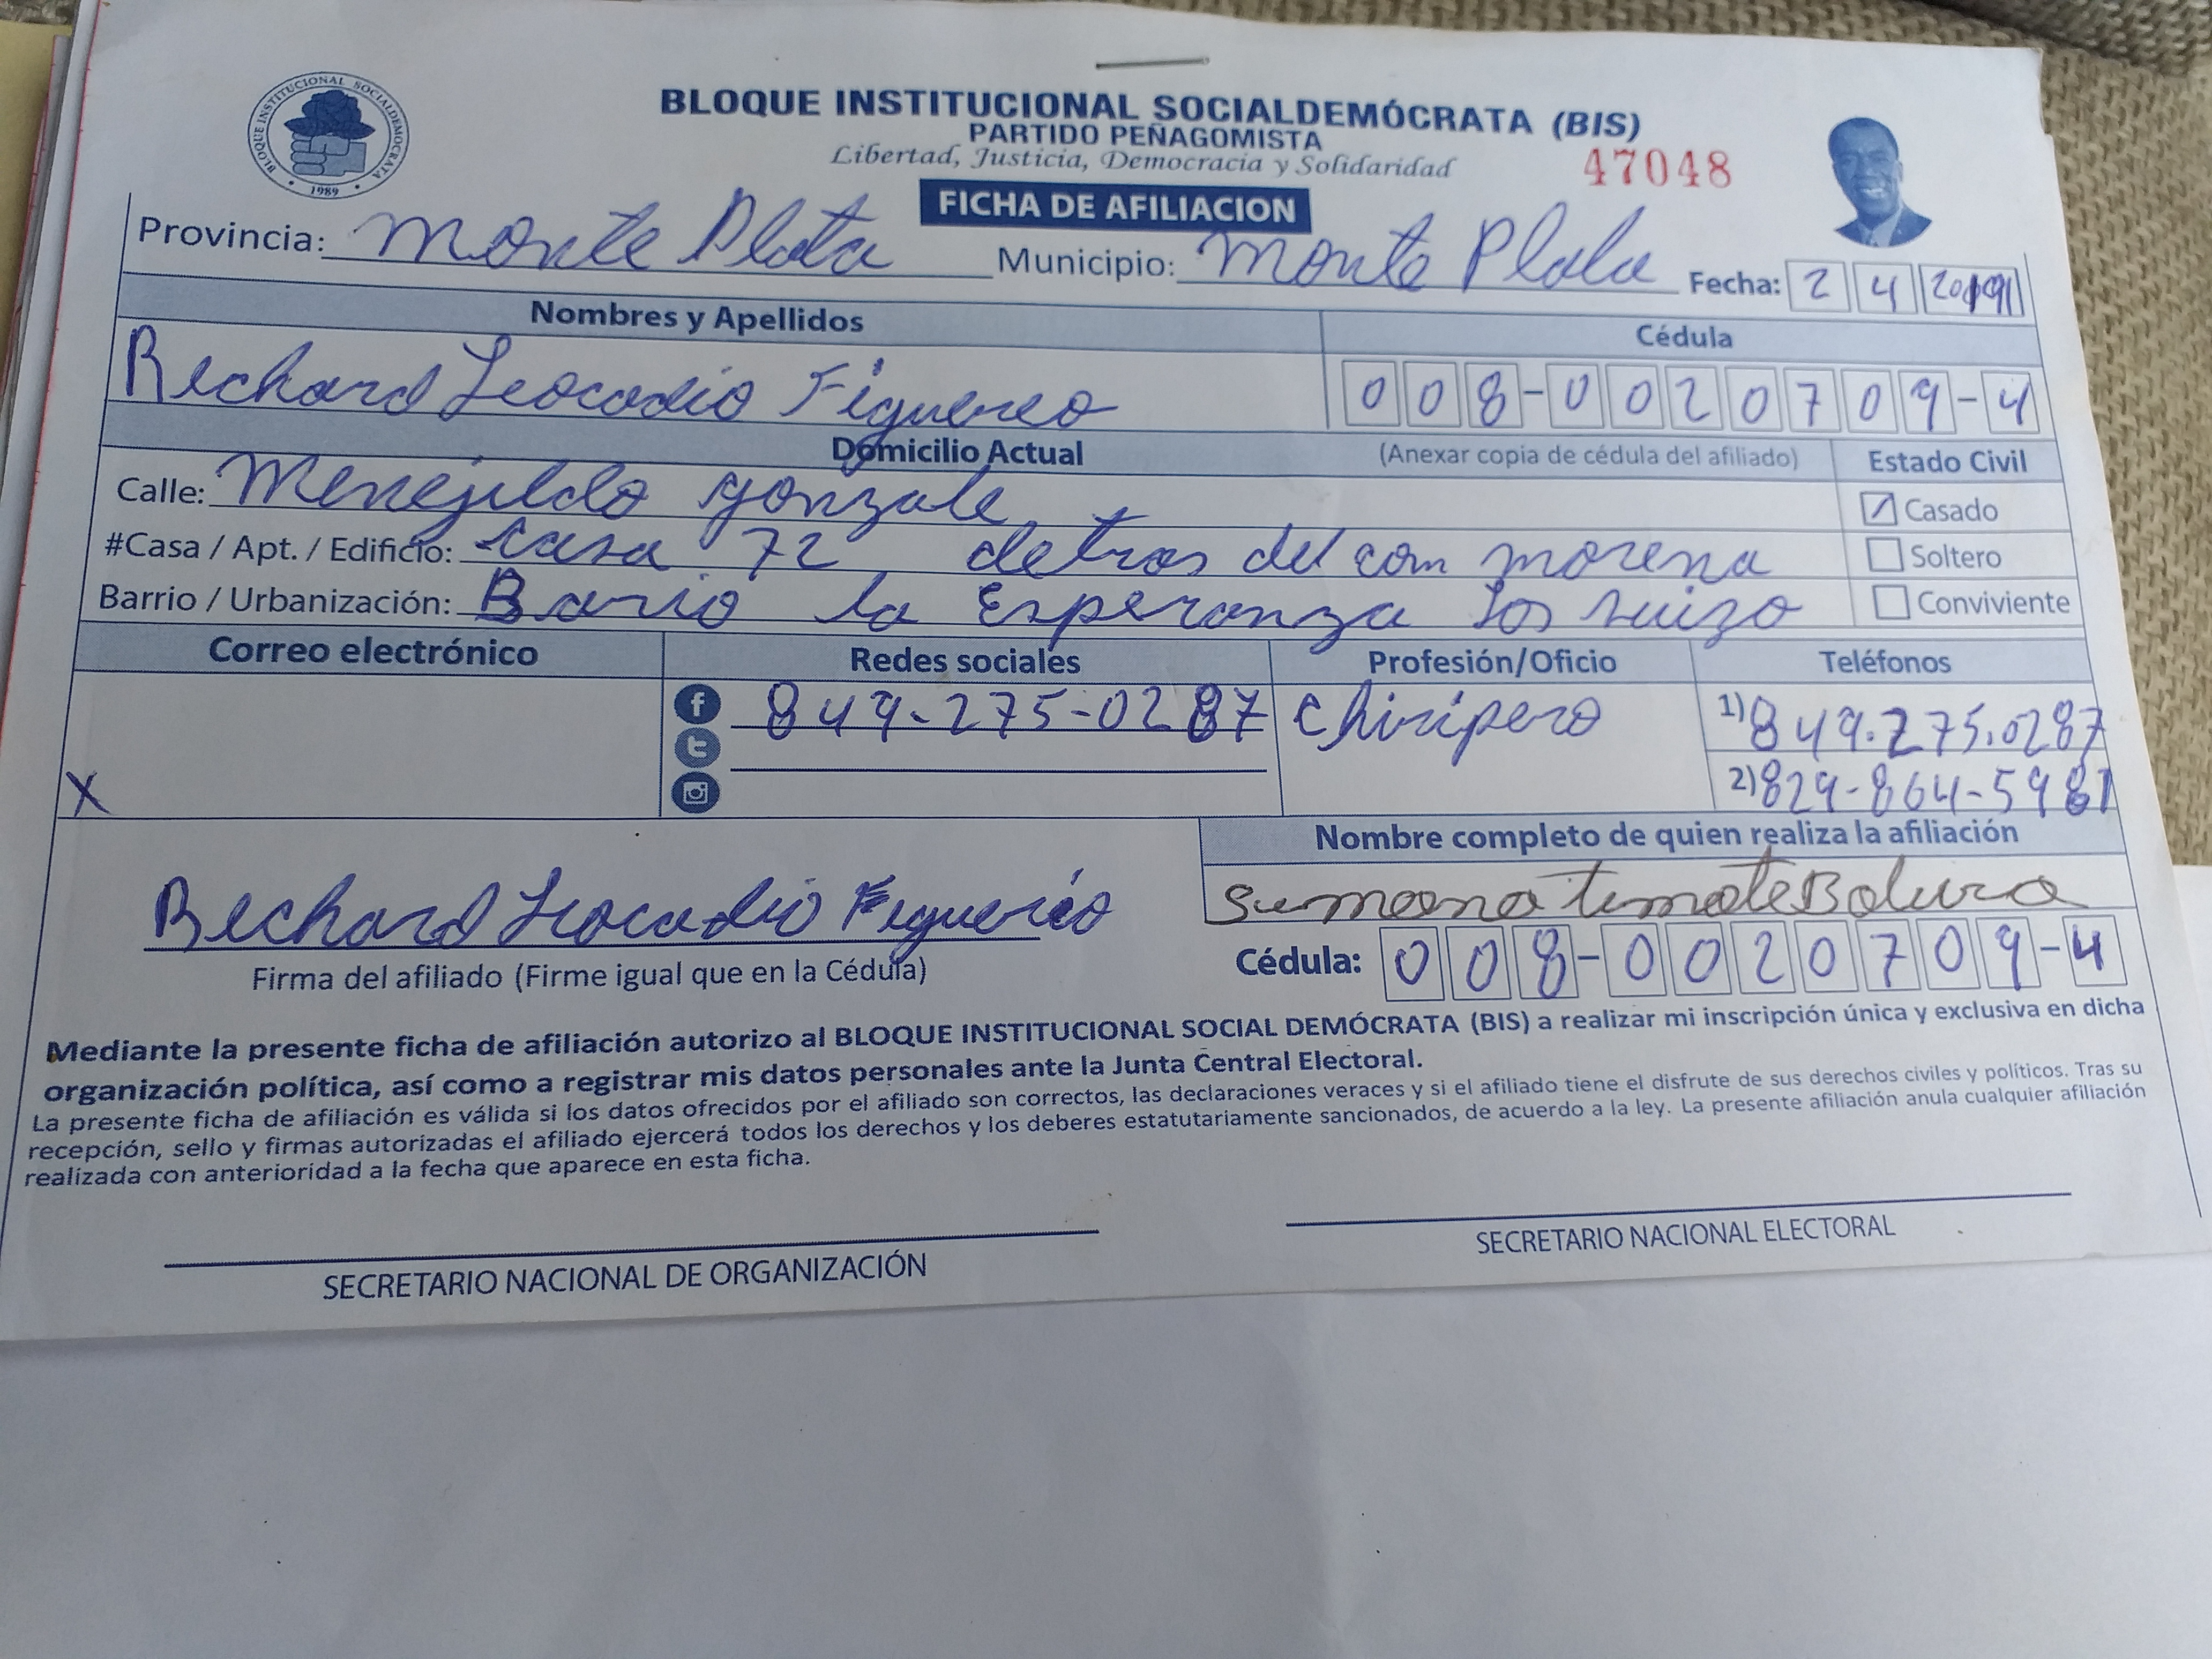 BLOQUE INSTITUCIONAL SOCIALDEMOCRATA
1989
BLOQUE INSTITUCIONAL SOCIALDEMÓCRATA (BIS)
PARTIDO PEÑAGOMISTA
Libertad, Justicia, Democracia y Solidaridad
47048
FICHA DE AFILIACION
Provincia: Monte Plata Municipio: Monte Plata Fecha: 2 4 2019
Nombres y Apellidos Cédula
Rechard Leocadio Figuereo 008-0020709-4
Domicilio Actual (Anexar copia de cédula del afiliado) Estado Civil
Calle: Menejildo gonzale Casado
#Casa / Apt. / Edificio: casa 72 detras del com morena Soltero
Barrio / Urbanización: Bario la Esperanza los suizo Conviviente
Correo electrónico Redes sociales Profesión/Oficio Teléfonos
849-275-0287 chiripero 1) 849.275.0287
X 2) 829-864-5981
Nombre completo de quien realiza la afiliación
Rechard Leocadio Figuereo
Firma del afiliado (Firme igual que en la Cédula) Cédula: 008-0020709-4
Mediante la presente ficha de afiliación autorizo al BLOQUE INSTITUCIONAL SOCIAL DEMÓCRATA (BIS) a realizar mi inscripción única y exclusiva en dicha
organización política, así como a registrar mis datos personales ante la Junta Central Electoral.
La presente ficha de afiliación es válida si los datos ofrecidos por el afiliado son correctos, las declaraciones veraces y si el afiliado tiene el disfrute de sus derechos civiles y políticos. Tras su
recepción, sello y firmas autorizadas el afiliado ejercerá todos los derechos y los deberes estatutariamente sancionados, de acuerdo a la ley. La presente afiliación anula cualquier afiliación
realizada con anterioridad a la fecha que aparece en esta ficha.
SECRETARIO NACIONAL DE ORGANIZACIÓN SECRETARIO NACIONAL ELECTORAL